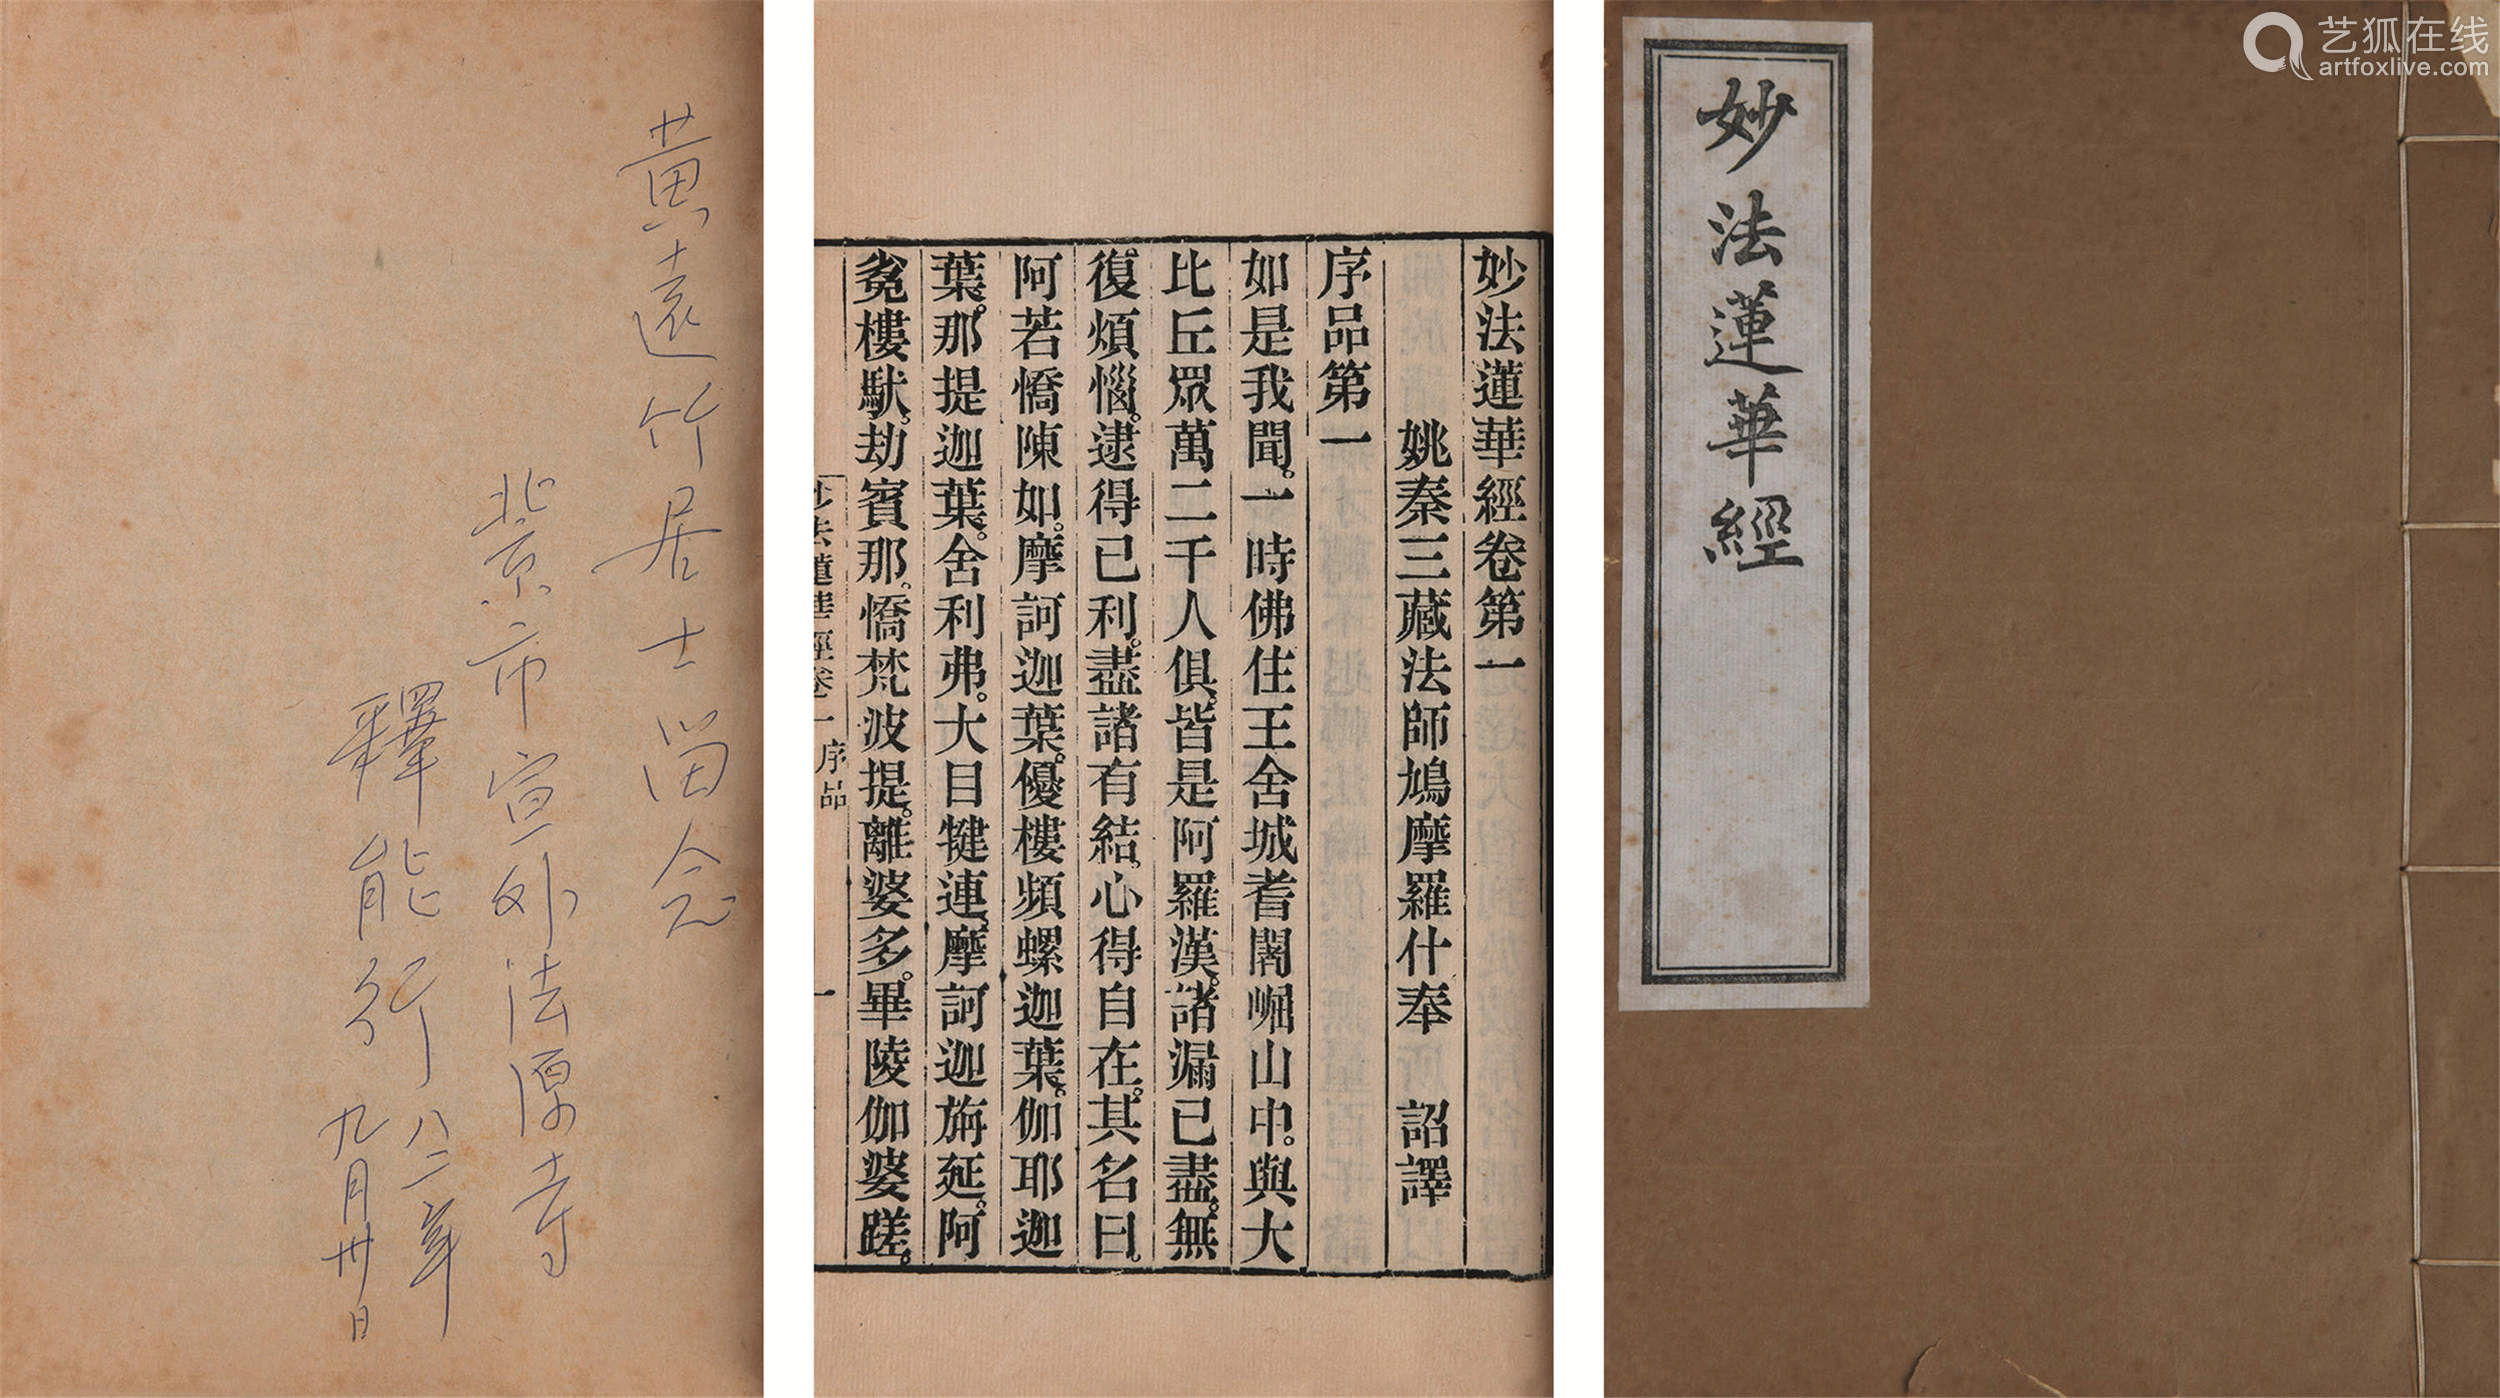 艺狐在线
artfoxlive.com
妙法蓮華經
妙法蓮華經卷第一
姚秦三藏法師鳩摩羅什奉 詔譯
序品第一
如是我聞。一時佛住王舍城耆闍崛山中。與大
比丘眾萬二千人俱。皆是阿羅漢。諸漏已盡。無
復煩惱。逮得已利。盡諸有結。心得自在。其名曰。
阿若憍陳如。摩訶迦葉。優樓頻螺迦葉。伽耶迦
葉。那提迦葉。舍利弗。大目犍連。摩訶迦旃延。阿
㝹樓馱。劫賓那。憍梵波提。離婆多。畢陵伽婆蹉。
妙法蓮華經卷一 序品 一
黃遠竹居士留念
北京市宣外法源寺
釋能行 八二年
九月卅日